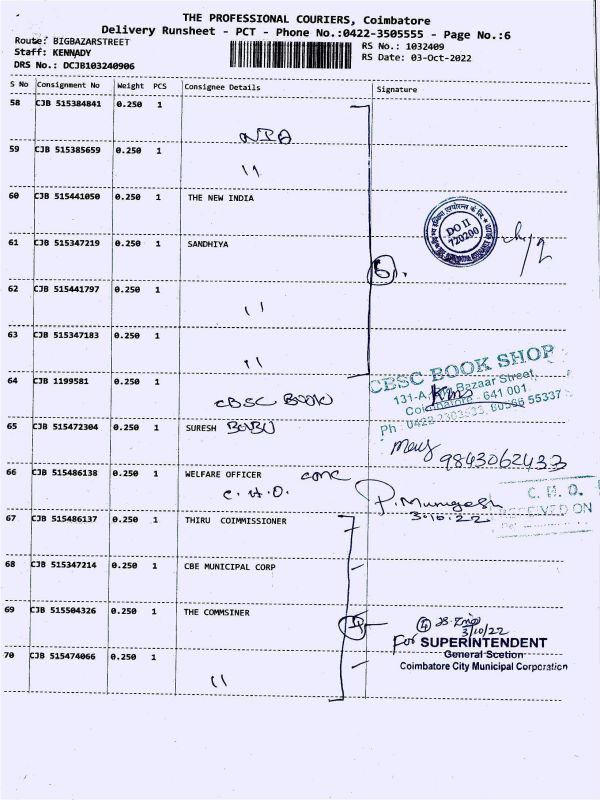 THE PROFESSIONAL COURIERS, Coimbatore
Delivery Runsheet - PCT - Phone No.:0422-3505555 - Page No.:6
Route: BIGBAZARSTREET
Staff: KENNADY
DRS No.: DCJB103240906
RS No.: 1032409
RS Date: 03-Oct-2022
S No Consignment No Weight PCS Consignee Details Signature
58 CJB 515384841 0.250 1
NIA
59 CJB 515385659 0.250 1
"
60 CJB 515441050 0.250 1 THE NEW INDIA
DO II
720200
61 CJB 515347219 0.250 1 SANDHIYA
62 CJB 515441797 0.250 1
"
63 CJB 515347183 0.250 1
"
64 CJB 1199581 0.250 1
CBSC BOOK
CBSC BOOK SHOP
Bazaar Street,
Coimbatore - 641 001
65 CJB 515472304 0.250 1 SURESH BABU
9843062433
66 CJB 515486138 0.250 1 WELFARE OFFICER CMC
C. H. O.
P. Murugesh
3.10.22
C. H. O.
RECEIVED ON
67 CJB 515486137 0.250 1 THIRU COIMMISSIONER
68 CJB 515347214 0.250 1 CBE MUNICIPAL CORP
69 CJB 515504326 0.250 1 THE COMMSINER
4
3/10/22
For SUPERINTENDENT
General Scetion
Coimbatore City Municipal Corporation
70 CJB 515474066 0.250 1
"